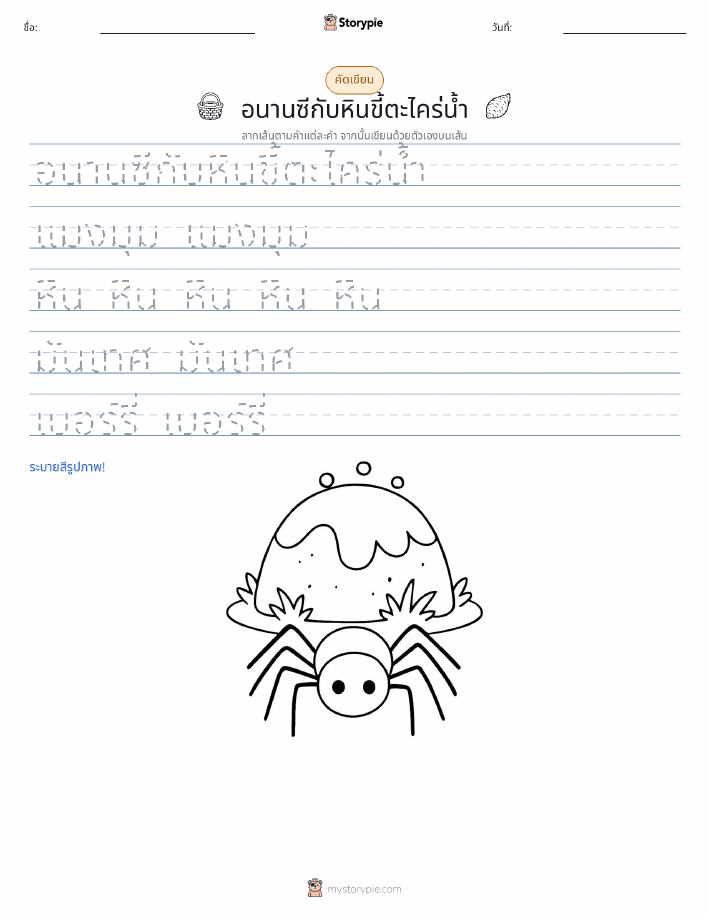 ชื่อ:
Storypie
วันที่:
คัดเขียน
อนานซีกับหินขี้ตะไคร่น้ำ
ลากเส้นตามคำแต่ละคำ จากนั้นเขียนด้วยตัวเองบนเส้น
อนานซีกับหินขี้ตะไคร่น้ำ
แมงมุม แมงมุม
หิน หิน หิน หิน หิน
มันเทศ มันเทศ
เบอร์รี่ เบอร์รี่
ระบายสีรูปภาพ!
mystorypie.com